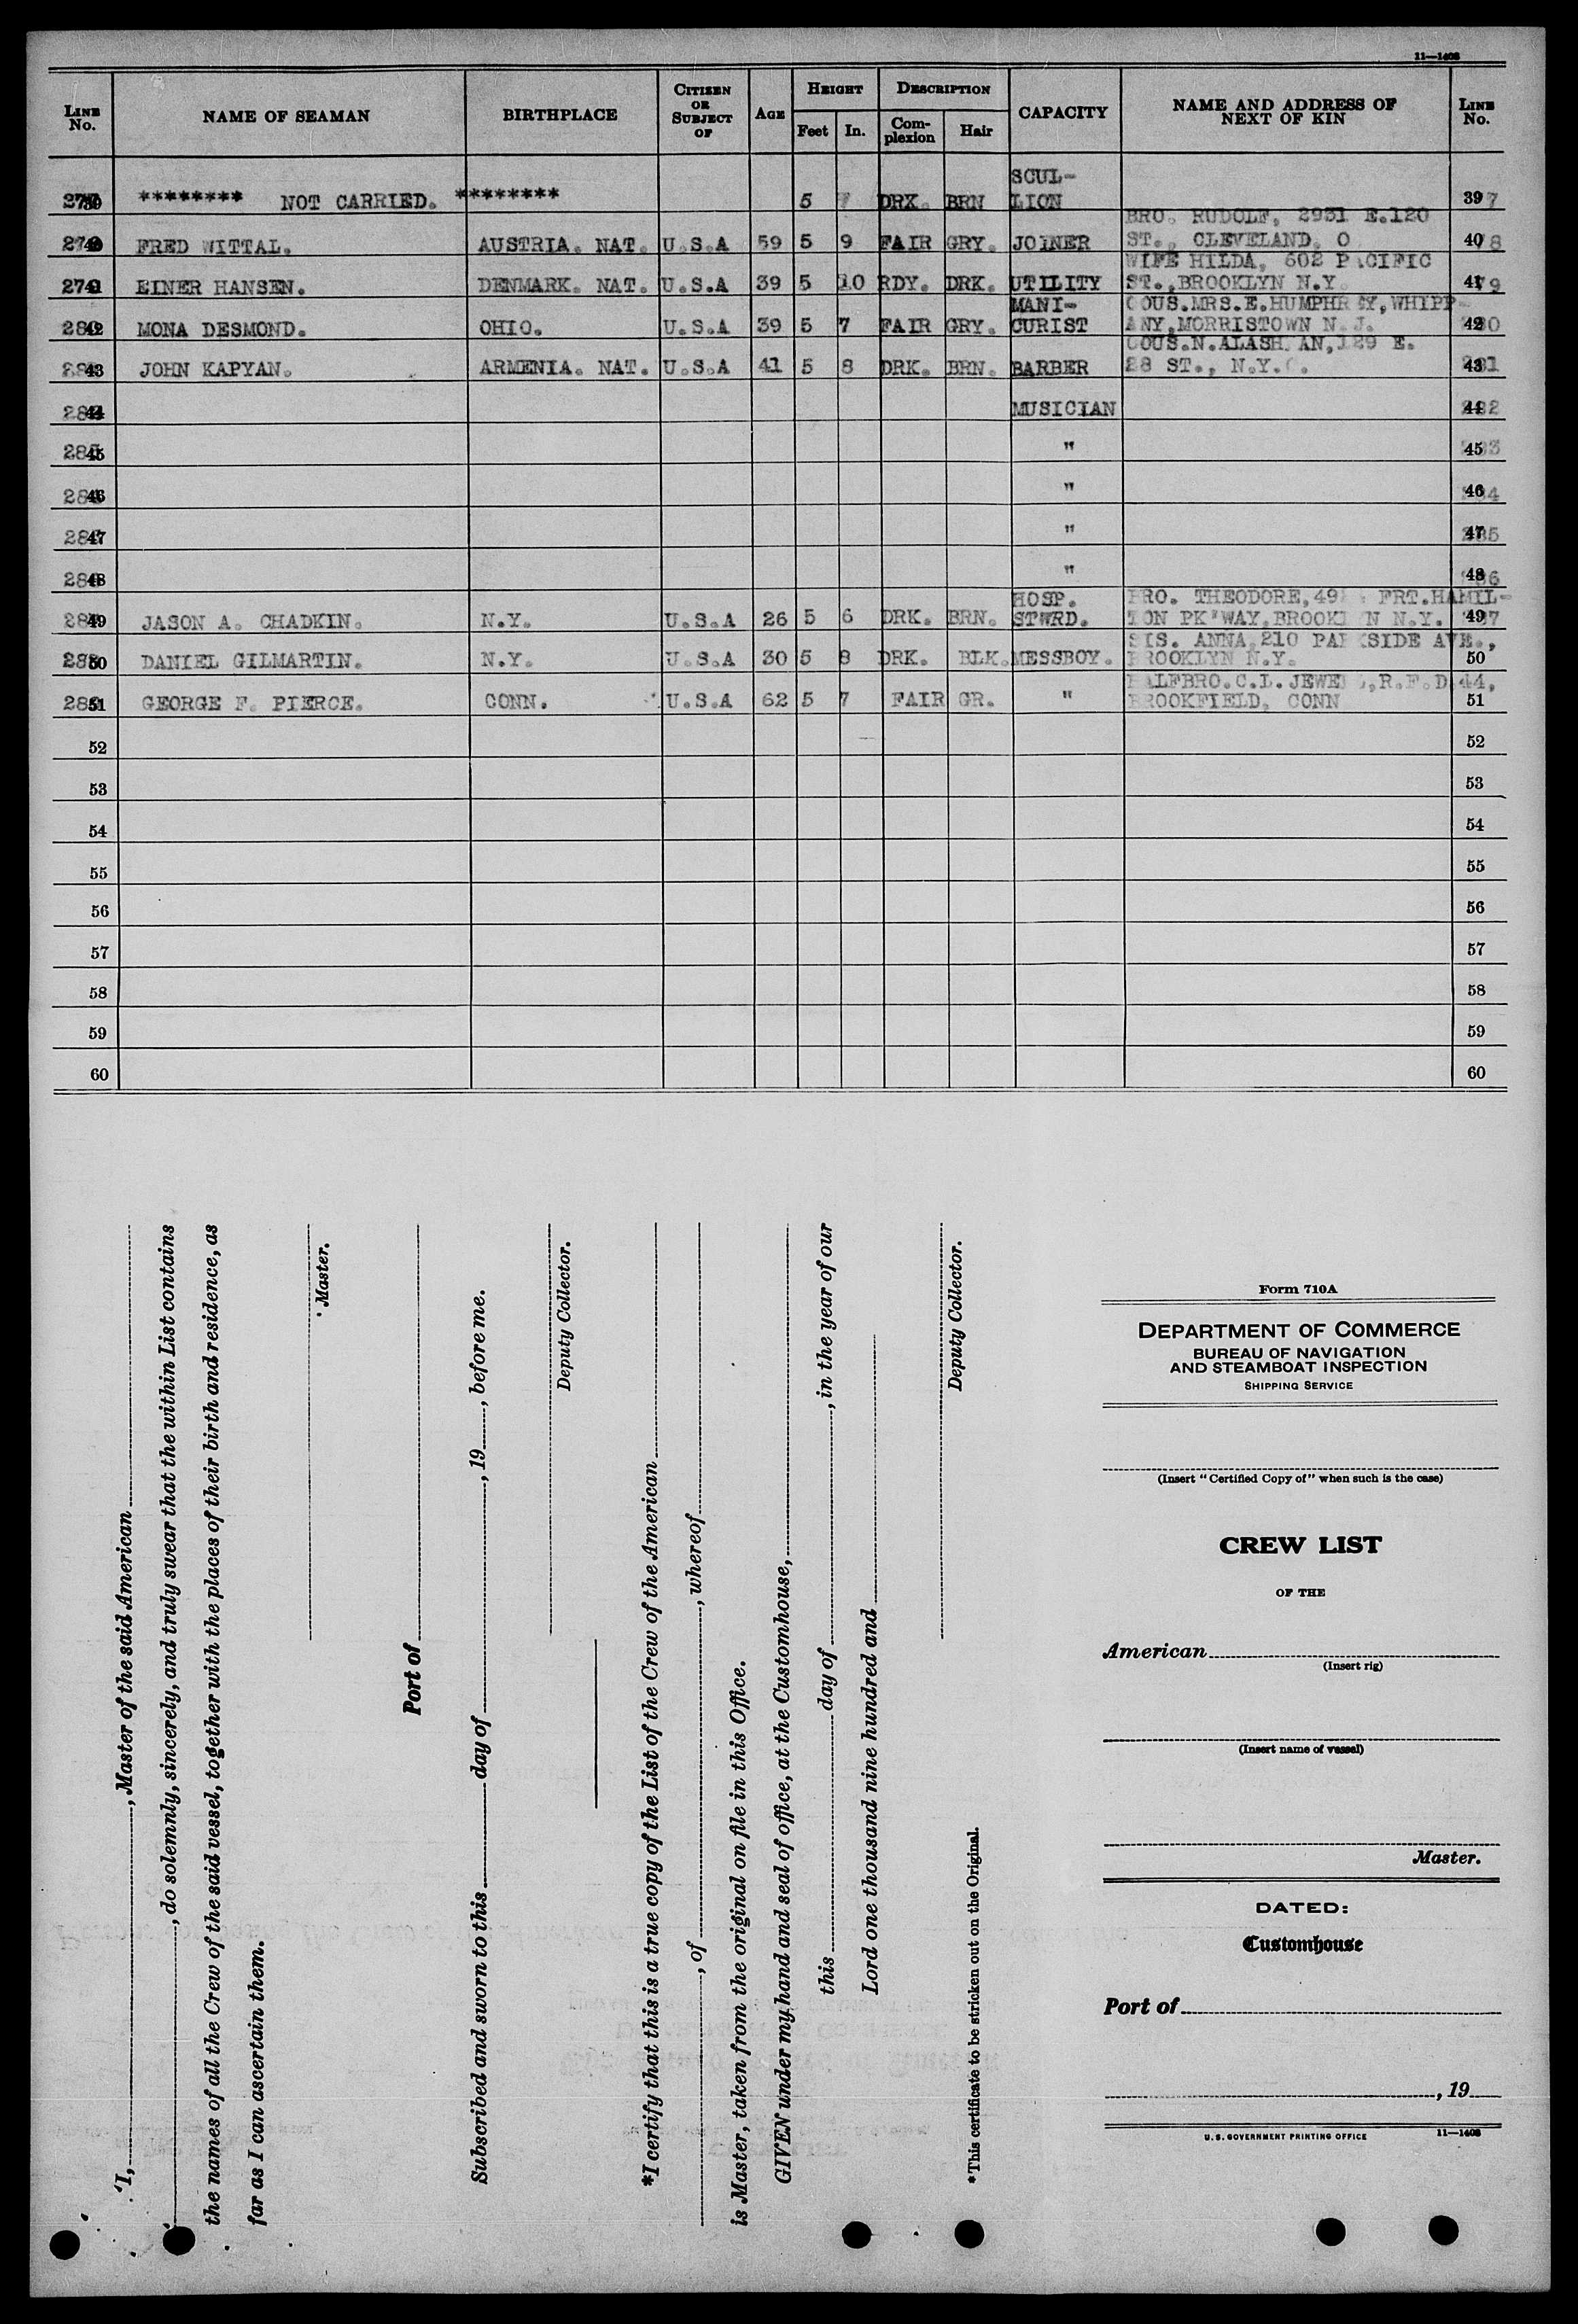 11—1408
LINE No. NAME OF SEAMAN BIRTHPLACE CITIZEN OR SUBJECT OF AGE HEIGHT Feet In. DESCRIPTION Complexion Hair CAPACITY NAME AND ADDRESS OF NEXT OF KIN LINE No.
39 ******** NOT CARRIED. ******** 5 7 DRK. BRN SCULLION 39
40 FRED WITTAL. AUSTRIA. NAT. U.S.A 59 5 9 FAIR GRY. JOINER BRO. RUDOLF, 2931 E.120 ST., CLEVELAND, O 40
41 EINER HANSEN. DENMARK. NAT. U.S.A 39 5 10 RDY. DRK. UTILITY WIFE HILDA, 602 PACIFIC ST., BROOKLYN N.Y. 41
42 MONA DESMOND. OHIO. U.S.A 39 5 7 FAIR GRY. MANICURIST COUS.MRS.E.HUMPHREY, WHIPPANY, MORRISTOWN N.J. 42
43 JOHN KAPYAN. ARMENIA. NAT. U.S.A 41 5 8 DRK. BRN. BARBER COUS.N. 129 E. 28 ST., N.Y. 43
44 MUSICIAN 44
45 " 45
46 " 46
47 " 47
48 " 48
49 JASON A. CHADKIN. N.Y. U.S.A 26 5 6 DRK. BRN. HOSP. STWRD. BRO. THEODORE, FRT.HAMILTON PK'WAY, BROOKLYN N.Y. 49
50 DANIEL GILMARTIN. N.Y. U.S.A 30 5 8 DRK. BLK. MESSBOY. SIS. ANNA, 210 PARKSIDE AVE., BROOKLYN N.Y. 50
51 GEORGE F. PIERCE. CONN. U.S.A 62 5 7 FAIR GR. " HALFBRO.C.L. JEWELL, R.F.D.44, BROOKFIELD, CONN 51
52 52
53 53
54 54
55 55
56 56
57 57
58 58
59 59
60 60
*I, , Master of the said American
, do solemnly, sincerely, and truly swear that the within List contains
the names of all the Crew of the said vessel, together with the places of their birth and residence, as
far as I can ascertain them.
Master.
Port of
Subscribed and sworn to this day of , 19 , before me.
Deputy Collector.
*I certify that this is a true copy of the List of the Crew of the American
, of , whereof
is Master, taken from the original on file in this Office.
GIVEN under my hand and seal of office, at the Customhouse,
this day of , in the year of our
Lord one thousand nine hundred and
Deputy Collector.
*This certificate to be stricken out on the Original.
Form 710A
DEPARTMENT OF COMMERCE
BUREAU OF NAVIGATION
AND STEAMBOAT INSPECTION
SHIPPING SERVICE
(Insert "Certified Copy of" when such is the case)
CREW LIST
OF THE
American
(Insert rig)
(Insert name of vessel)
Master.
DATED:
Customhouse
Port of
, 19
U. S. GOVERNMENT PRINTING OFFICE 11—1408